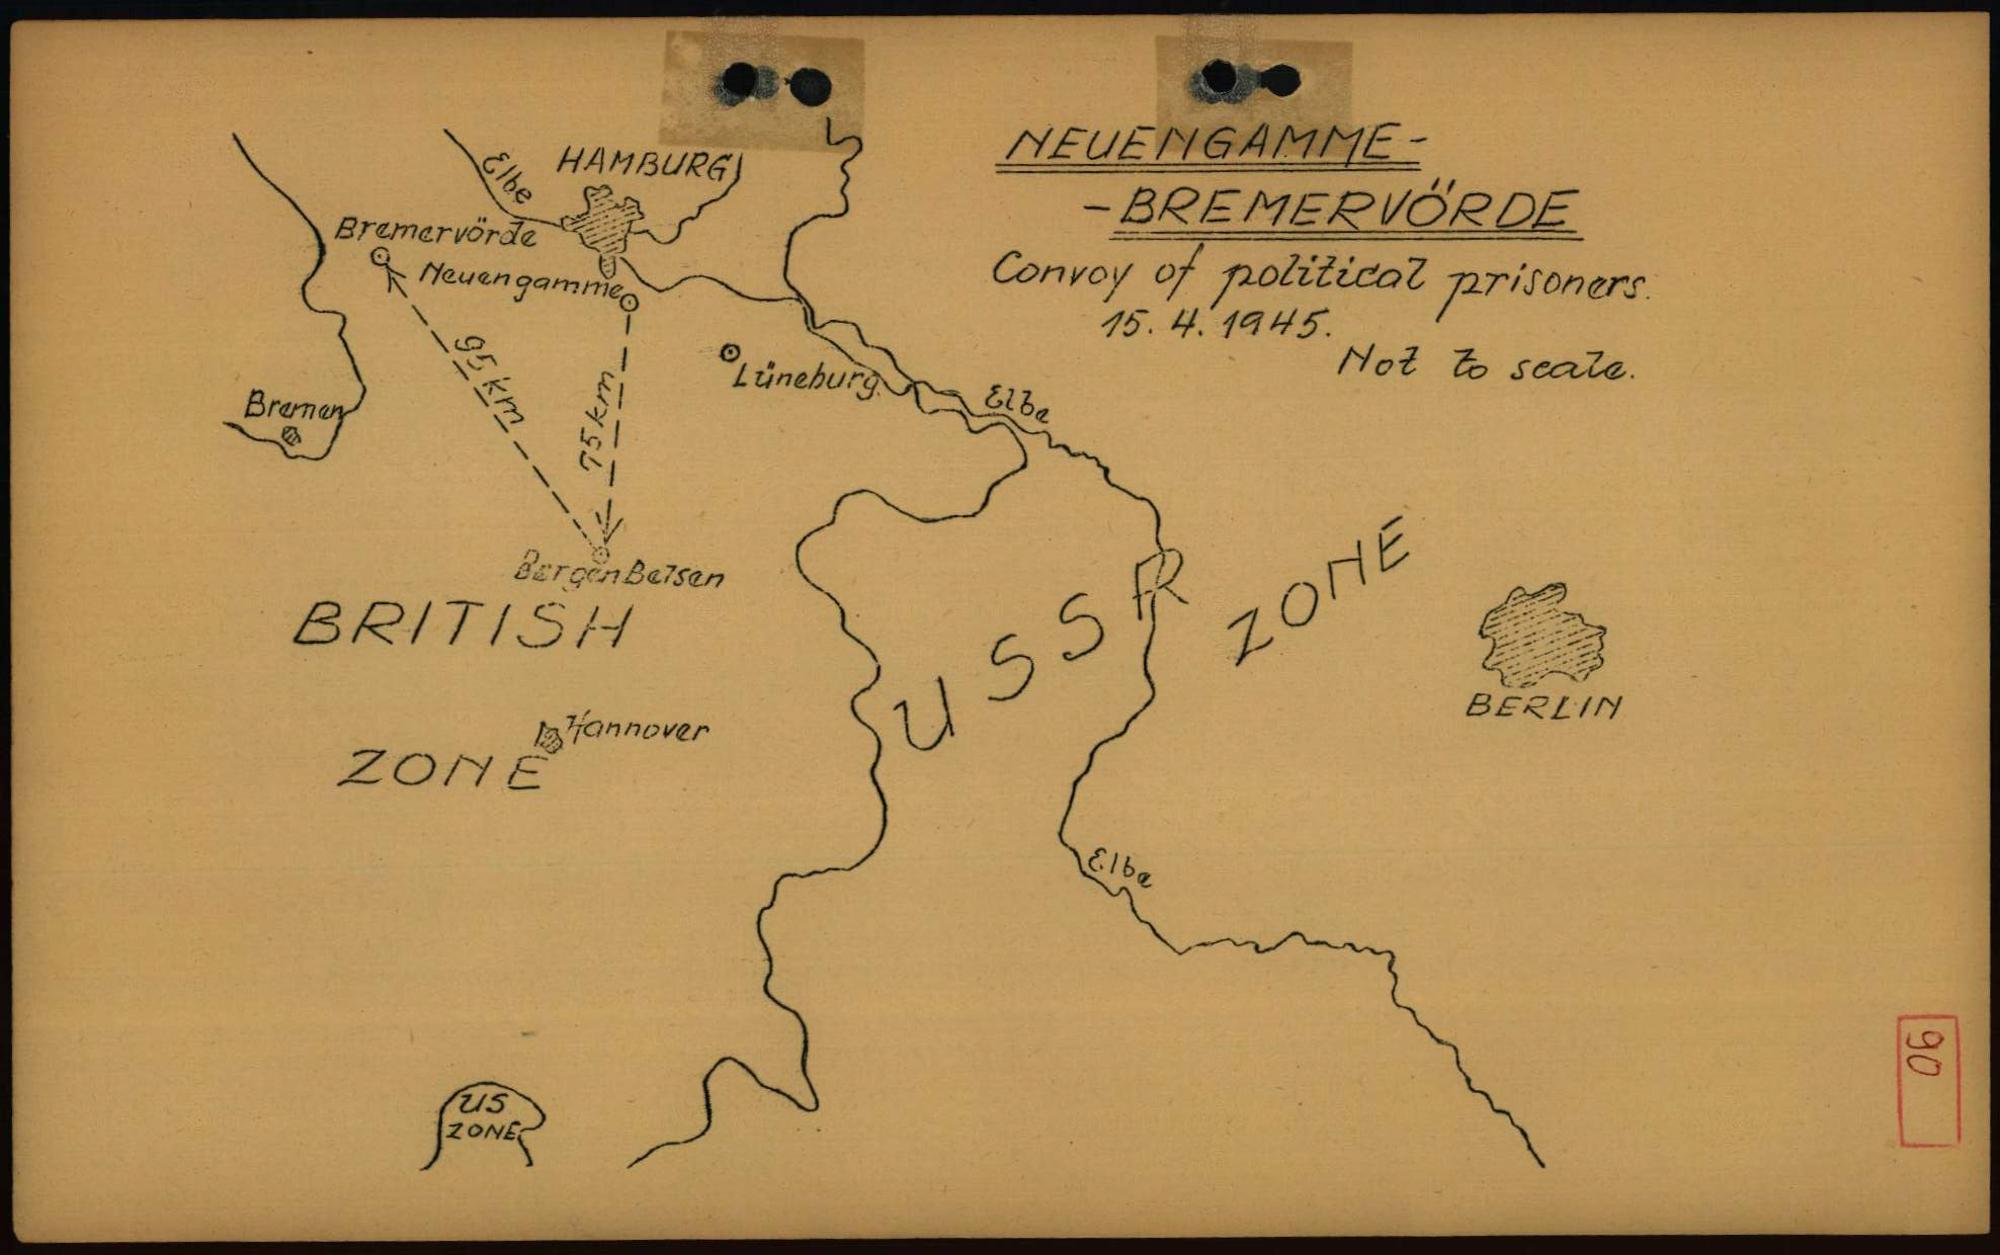 NEUENGAMME-
-BREMERVÖRDE
Convoy of political prisoners.
15. 4. 1945.
Not to scale.
Elbe
HAMBURG
Bremervörde
Neuengamme
95 km
75 km
Lüneburg
Bremen
Elbe
Bergen Belsen
BRITISH
ZONE
Hannover
USSR
ZONE
BERLIN
Elbe
US
ZONE
90